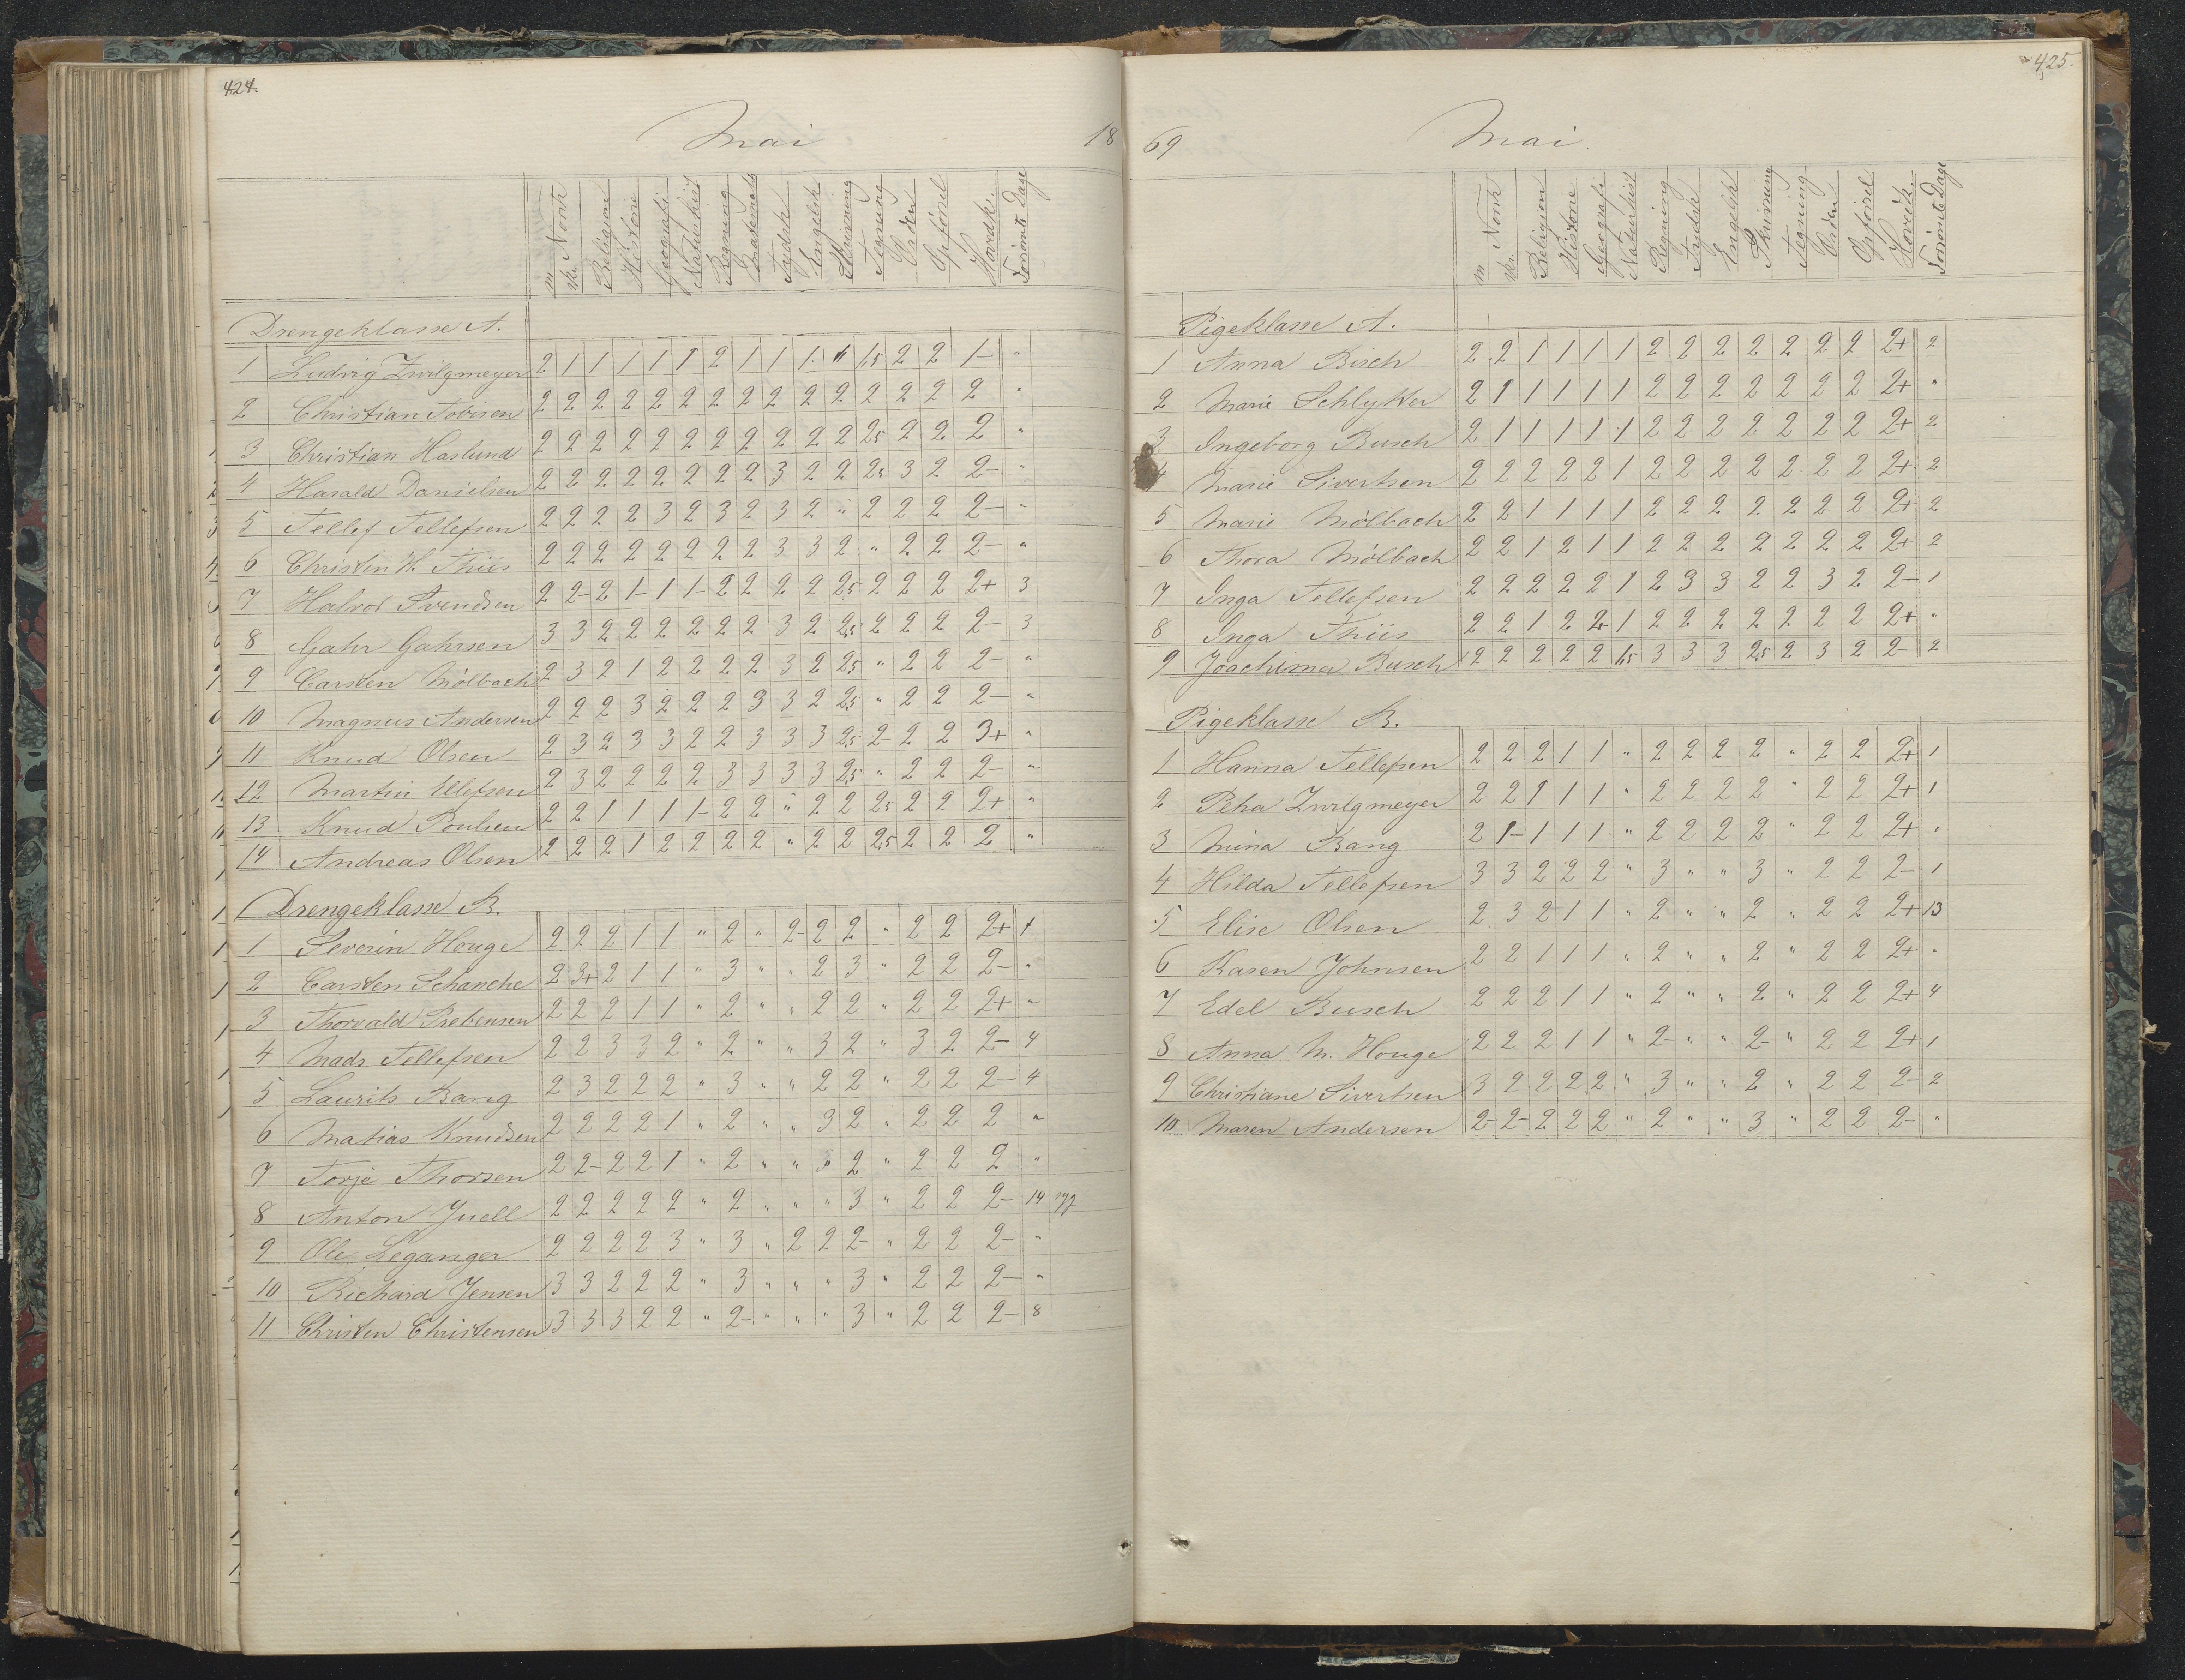 424.
Mai 18
m. Norsk
sk.
Religion
Historie
Geografi
Naturhist
Regning
Mathemat
Tydsk
Engelsk
Skrivning
Tegning
Orden
Opførsel
Hovedk.
Forsømte Dage
Drengeklasse A.
1 Ludvig Zwilgmeyer 2 1 1 1 1 1 2 1 1 1 1 1,5 2 2 1- "
2 Christian Tobisen 2 2 2 2 2 2 2 2 2 2 2 2 2 2 2 "
3 Christian Haslund 2 2 2 2 2 2 2 2 2 2 2 2,5 2 2 2 "
4 Harald Danielsen 2 2 2 2 2 2 2 2 3 2 2 2,5 3 2 2- "
5 Tellef Tellefsen 2 2 2 2 3 2 3 2 3 2 " 2 2 2 2- "
6 Christen H. Thiis 2 2 2 2 2 2 2 2 3 3 2 " 2 2 2- "
7 Halvor Svendsen 2 2- 2 1- 1 1- 2 2 2 2 2,5 2 2 2 2+ 3
8 Gahr Gahrsen 3 3 2 2 2 2 2 2 3 2 2,5 2 2 2 2- 3
9 Carsten Mølbach 2 3 2 1 2 2 2 2 3 2 2,5 " 2 2 2- "
10 Magnus Andersen 2 2 2 3 2 2 2 3 3 2 2,5 " 2 2 2- "
11 Knud Olsen 2 3 2 3 3 2 2 3 3 3 2,5 2- 2 2 3+ "
12 Martin Ellefsen 2 3 2 2 2 2 3 3 3 3 2,5 " 2 2 2- "
13 Knud Poulsen 2 2 1 1 1 1- 2 2 " 2 2 2,5 2 2 2+ "
14 Andreas Olsen 2 2 2 1 2 2 2 2 " 2 2 2,5 2 2 2 "
Drengeklasse B.
1 Severin Houge 2 2 2 1 1 " 2 " 2- 2 2 " 2 2 2+ 1
2 Carsten Schanche 2 3+ 2 1 1 " 3 " " 2 3 " 2 2 2- "
3 Thorvald Prebensen 2 2 2 1 1 " 2 " " 2 2 " 2 2 2+ "
4 Mads Tellefsen 2 2 3 3 2 " 2 " " 3 2 " 3 2 2- 4
5 Laurits Bang 2 3 2 2 2 " 3 " " 2 2 " 2 2 2- 4
6 Matias Knudsen 2 2 2 2 1 " 2 " " 3 2 " 2 2 2 "
7 Torje Thorsen 2 2- 2 2 1 " 2 " " " 2 " 2 2 2 "
8 Anton Juell 2 2 2 2 2 " 2 " " " 3 " 2 2 2- 14 syg
9 Ole Leganger 2 2 2 2 3 " 3 " 2 2 2- " 2 2 2- "
10 Richard Jensen 3 3 2 2 2 " 3 " " " 3 " 2 2 2- "
11 Christen Christensen 3 3 3 2 2 " 2- " " " 3 " 2 2 2- 8
425.
69 Mai.
m. Norsk
sk.
Religion
Historie
Geografi
Naturhist
Regning
Tydsk
Engelsk
Skrivning
Tegning
Orden
Opførsel
Hovedk.
Forsømte Dage
Pigeklasse A.
1 Anna Bisch 2 2 1 1 1 1 2 2 2 2 2 2 2 2+ 2
2 Marie Schlytter 2 1 1 1 1 1 2 2 2 2 2 2 2 2+ "
3 Ingeborg Busch 2 1 1 1 1 1 2 2 2 2 2 2 2 2+ 2
4 Marie Sivertsen 2 2 2 2 2 1 2 2 2 2 2 2 2 2+ 2
5 Marie Mølbach 2 2 1 1 1 1 2 2 2 2 2 2 2 2+ 2
6 Thora Mølbach 2 2 1 2 1 1 2 2 2 2 2 2 2 2+ 2
7 Inga Tellefsen 2 2 2 2 2 1 2 3 3 2 2 3 2 2- 1
8 Inga Thiis 2 2 1 2 2+ 1 2 2 2 2 2 2 2 2+ "
9 Joachima Busch 2 2 2 2 2 1,5 3 3 3 2,5 2 3 2 2- 2
Pigeklasse B.
1 Hanna Tellefsen 2 2 2 1 1 " 2 2 2 2 " 2 2 2+ 1
2 Petra Zwilgmeyer 2 2 1 1 1 " 2 2 2 2 " 2 2 2+ 1
3 Mina Bang 2 1- 1 1 1 " 2 2 2 2 " 2 2 2+ "
4 Hilda Tellefsen 3 3 2 2 2 " 3 " " 3 " 2 2 2- 1
5 Elise Olsen 2 3 2 1 1 " 2 " " 2 " 2 2 2+ 13
6 Karen Johnsen 2 2 1 1 1 " 2 " " 2 " 2 2 2+ "
7 Edel Busch 2 2 2 1 1 " 2 " " 2 " 2 2 2+ 4
8 Anna M. Houge 2 2 2 1 1 " 2- " " 2- " 2 2 2+ 1
9 Christiane Sivertsen 3 2 2 2 2 " 3 " " 2 " 2 2 2- 2
10 Maren Andersen 2- 2- 2 2 2 " 2 " " 3 " 2 2 2- "